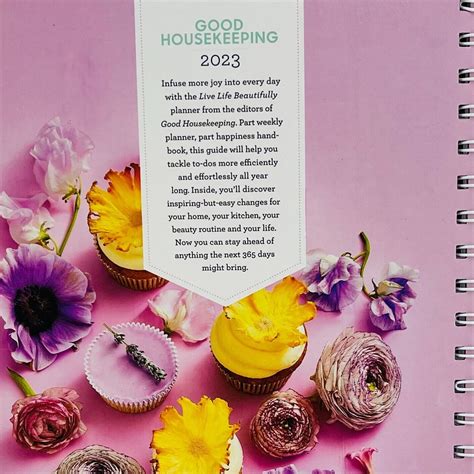 GOOD
HOUSEKEEPING
2023
Infuse more joy into every day
with the Live Life Beautifully
planner from the editors of
Good Housekeeping. Part weekly
planner, part happiness hand-
book, this guide will help you
tackle to-dos more efficiently
and effortlessly all year
long. Inside, you'll discover
inspiring-but-easy changes for
your home, your kitchen, your
beauty routine and your life.
Now you can stay ahead of
anything the next 365 days
might bring.